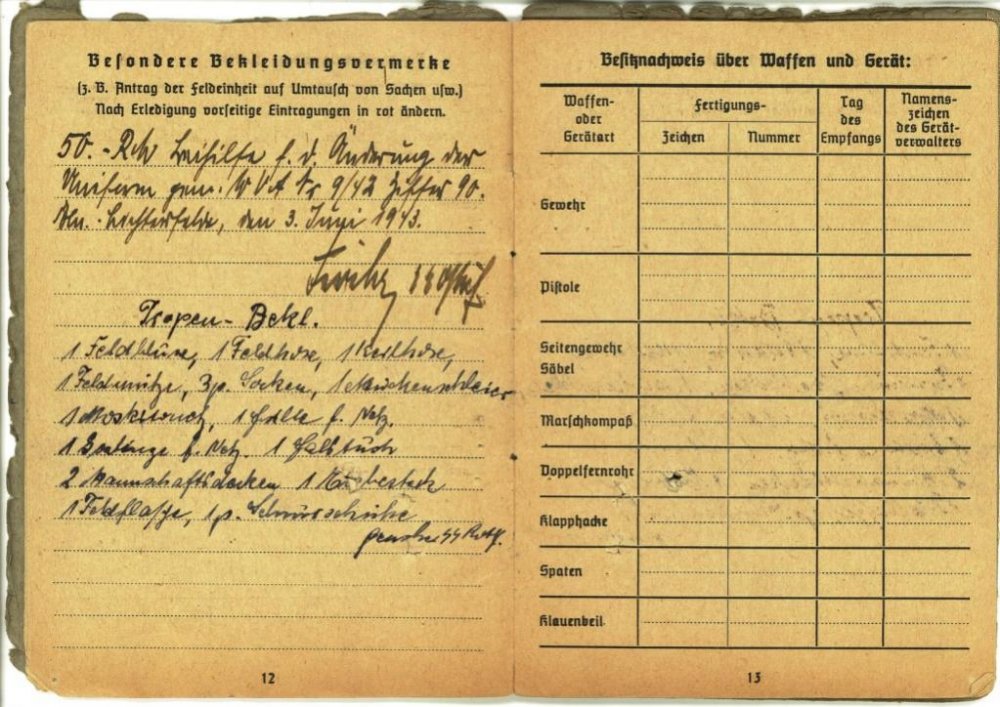 Besondere Bekleidungsvermerke
(z. B. Antrag der Feldeinheit auf Umtausch von Sachen usw.)
Nach Erledigung vorseitige Eintragungen in rot ändern.
50.- RM Beihilfe f. d. Änderung der
Uniform gem. W V A Nr 9/42 Ziffer 90.
Bln.-Lichterfelde, den 3. Juni 1943.
Tropen-Bekl.
1 Feldbluse, 1 Feldhose, 1 Reithose,
1 Feldmütze, 3 p. Socken, 1 Mückenschleier
1 Moskitonetz, 1 Hülle f. Netz.
1 f. Netz. 1 Halstuch
2 Mannschaftsdecken 1 Essbesteck
1 Feldflasche, 1 p. Schnürschuhe
SS Rottf.
12
Besitznachweis über Waffen und Gerät:
Waffen- oder Gerätart
Fertigungs-
Zeichen
Nummer
Tag des Empfangs
Namens- zeichen des Gerät- verwalters
Gewehr
Pistole
Seitengewehr
Säbel
Marschkompaß
Doppelfernrohr
Klapphacke
Spaten
Klauenbeil
13